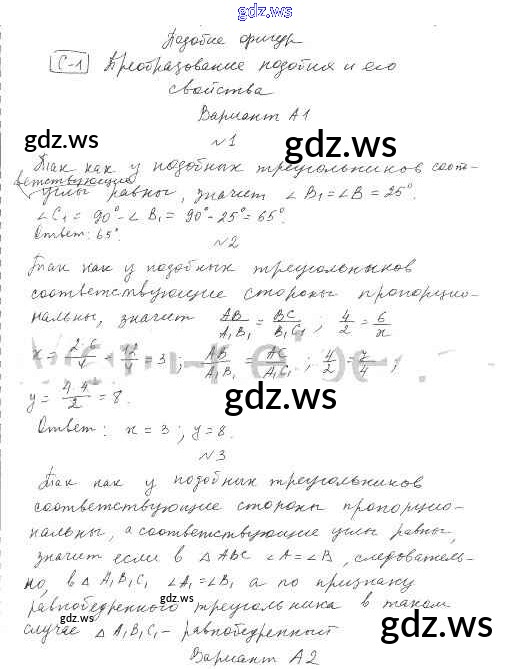 gdz.ws
Подобие фигур
С-1 Преобразование подобия и его
свойства
Вариант А1
№1
gdz.ws
gdz.ws
Так как у подобных треугольников соот-
ветствующие
углы равны, значит ∠B₁=∠B=25°.
∠C₁ = 90°-∠B₁ = 90°-25°=65°.
Ответ: 65°.
№2
Так как у подобных треугольников
соответствующие стороны пропорцио-
нальны, значит AB/A₁B₁ = BC/B₁C₁ ; 4/2 = 6/x
x = 2·6/4 = 12/4 = 3 ; AB/A₁B₁ = AC/A₁C₁ ; 4/2 = y/4 ;
y = 4·4/2 = 8.
gdz.ws
Ответ: x = 3 ; y = 8.
№3
Так как у подобных треугольников
соответствующие стороны пропорцио-
нальны, а соответствующие углы равны,
значит если в △ABC ∠A=∠B, следователь-
но, в △A₁B₁C₁ ∠A₁=∠B₁ а по признаку
gdz.ws
равнобедренного треугольника в таком
случае △A₁B₁C₁ – равнобедренный
gdz.ws
gdz.ws
Вариант А2